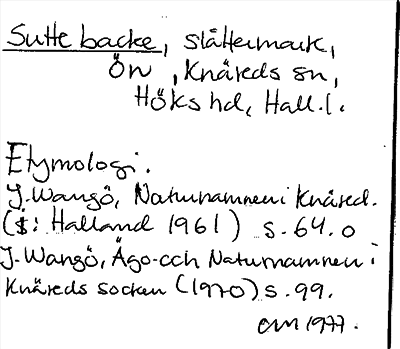 Sutte backe, slåttermark,
Ön, Knäreds sn,
Höks hd, Hall.l.
Etymologi.
J. Wangö, Naturnamnen i Knäred.
(I: Halland 1961) s. 64. o
J. Wangö, Ägo- och Naturnamnen i
Knäreds socken (1970) s. 99.
OM 1977.